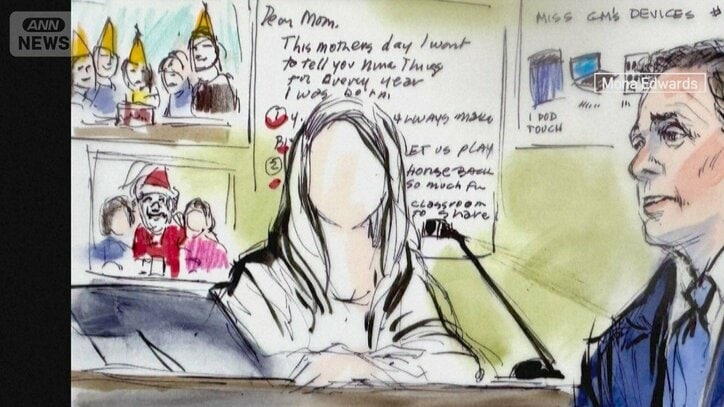 ANN
NEWS
Dear Mom.
This mothers day I want
to tell you nine Things
for Every year
I was Born.
4.
always make
②
LET us PLAY
HORSEBACK
so much fun
classroom
TO share
MISS GM'S DEVICES #
I POD
TOUCH
Mona Edwards